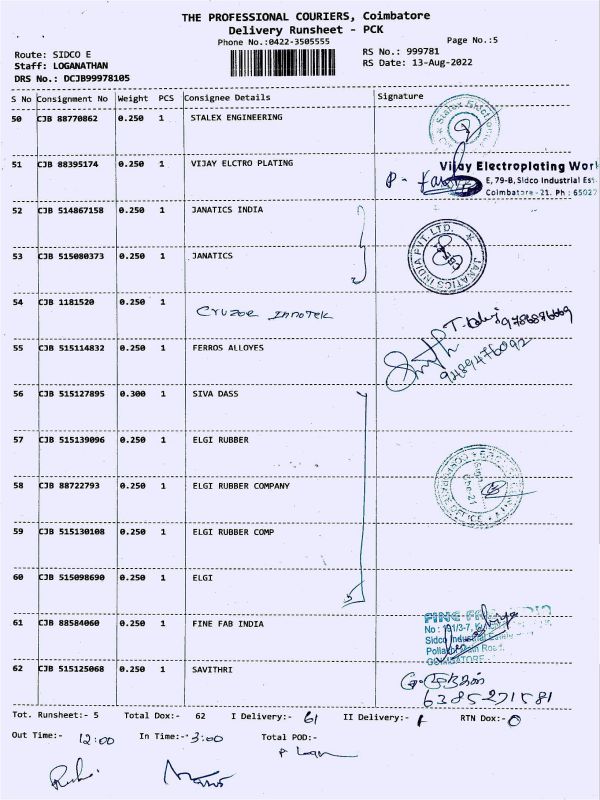 THE PROFESSIONAL COURIERS, Coimbatore
Delivery Runsheet - PCK
Phone No.:0422-3505555
Page No.:5
Route: SIDCO E
RS No.: 999781
Staff: LOGANATHAN
RS Date: 13-Aug-2022
DRS No.: DCJB99978105
S No Consignment No Weight PCS Consignee Details Signature
50 CJB 88770862 0.250 1 STALEX ENGINEERING
51 CJB 88395174 0.250 1 VIJAY ELCTRO PLATING
Vijay Electroplating Wor
E, 79-B, Sidco Industrial Est
Coimbatore - 21. Ph : 65027
52 CJB 514867158 0.250 1 JANATICS INDIA
53 CJB 515080373 0.250 1 JANATICS
JANATICS INDIA PVT. LTD.
54 CJB 1181520 0.250 1 Cruzoe Innotek
9786886669
55 CJB 515114832 0.250 1 FERROS ALLOYES
9489476092
56 CJB 515127895 0.300 1 SIVA DASS
57 CJB 515139096 0.250 1 ELGI RUBBER
58 CJB 88722793 0.250 1 ELGI RUBBER COMPANY
59 CJB 515130108 0.250 1 ELGI RUBBER COMP
60 CJB 515098690 0.250 1 ELGI
5
61 CJB 88584060 0.250 1 FINE FAB INDIA
No :
Sidco Industrial
Pollachi Main Road.
COIMBATORE
62 CJB 515125068 0.250 1 SAVITHRI
6385271581
Tot. Runsheet:- 5 Total Dox:- 62 I Delivery:- 61 II Delivery:- 1 RTN Dox:- 0
Out Time:- 12:00 In Time:- 3:00 Total POD:-